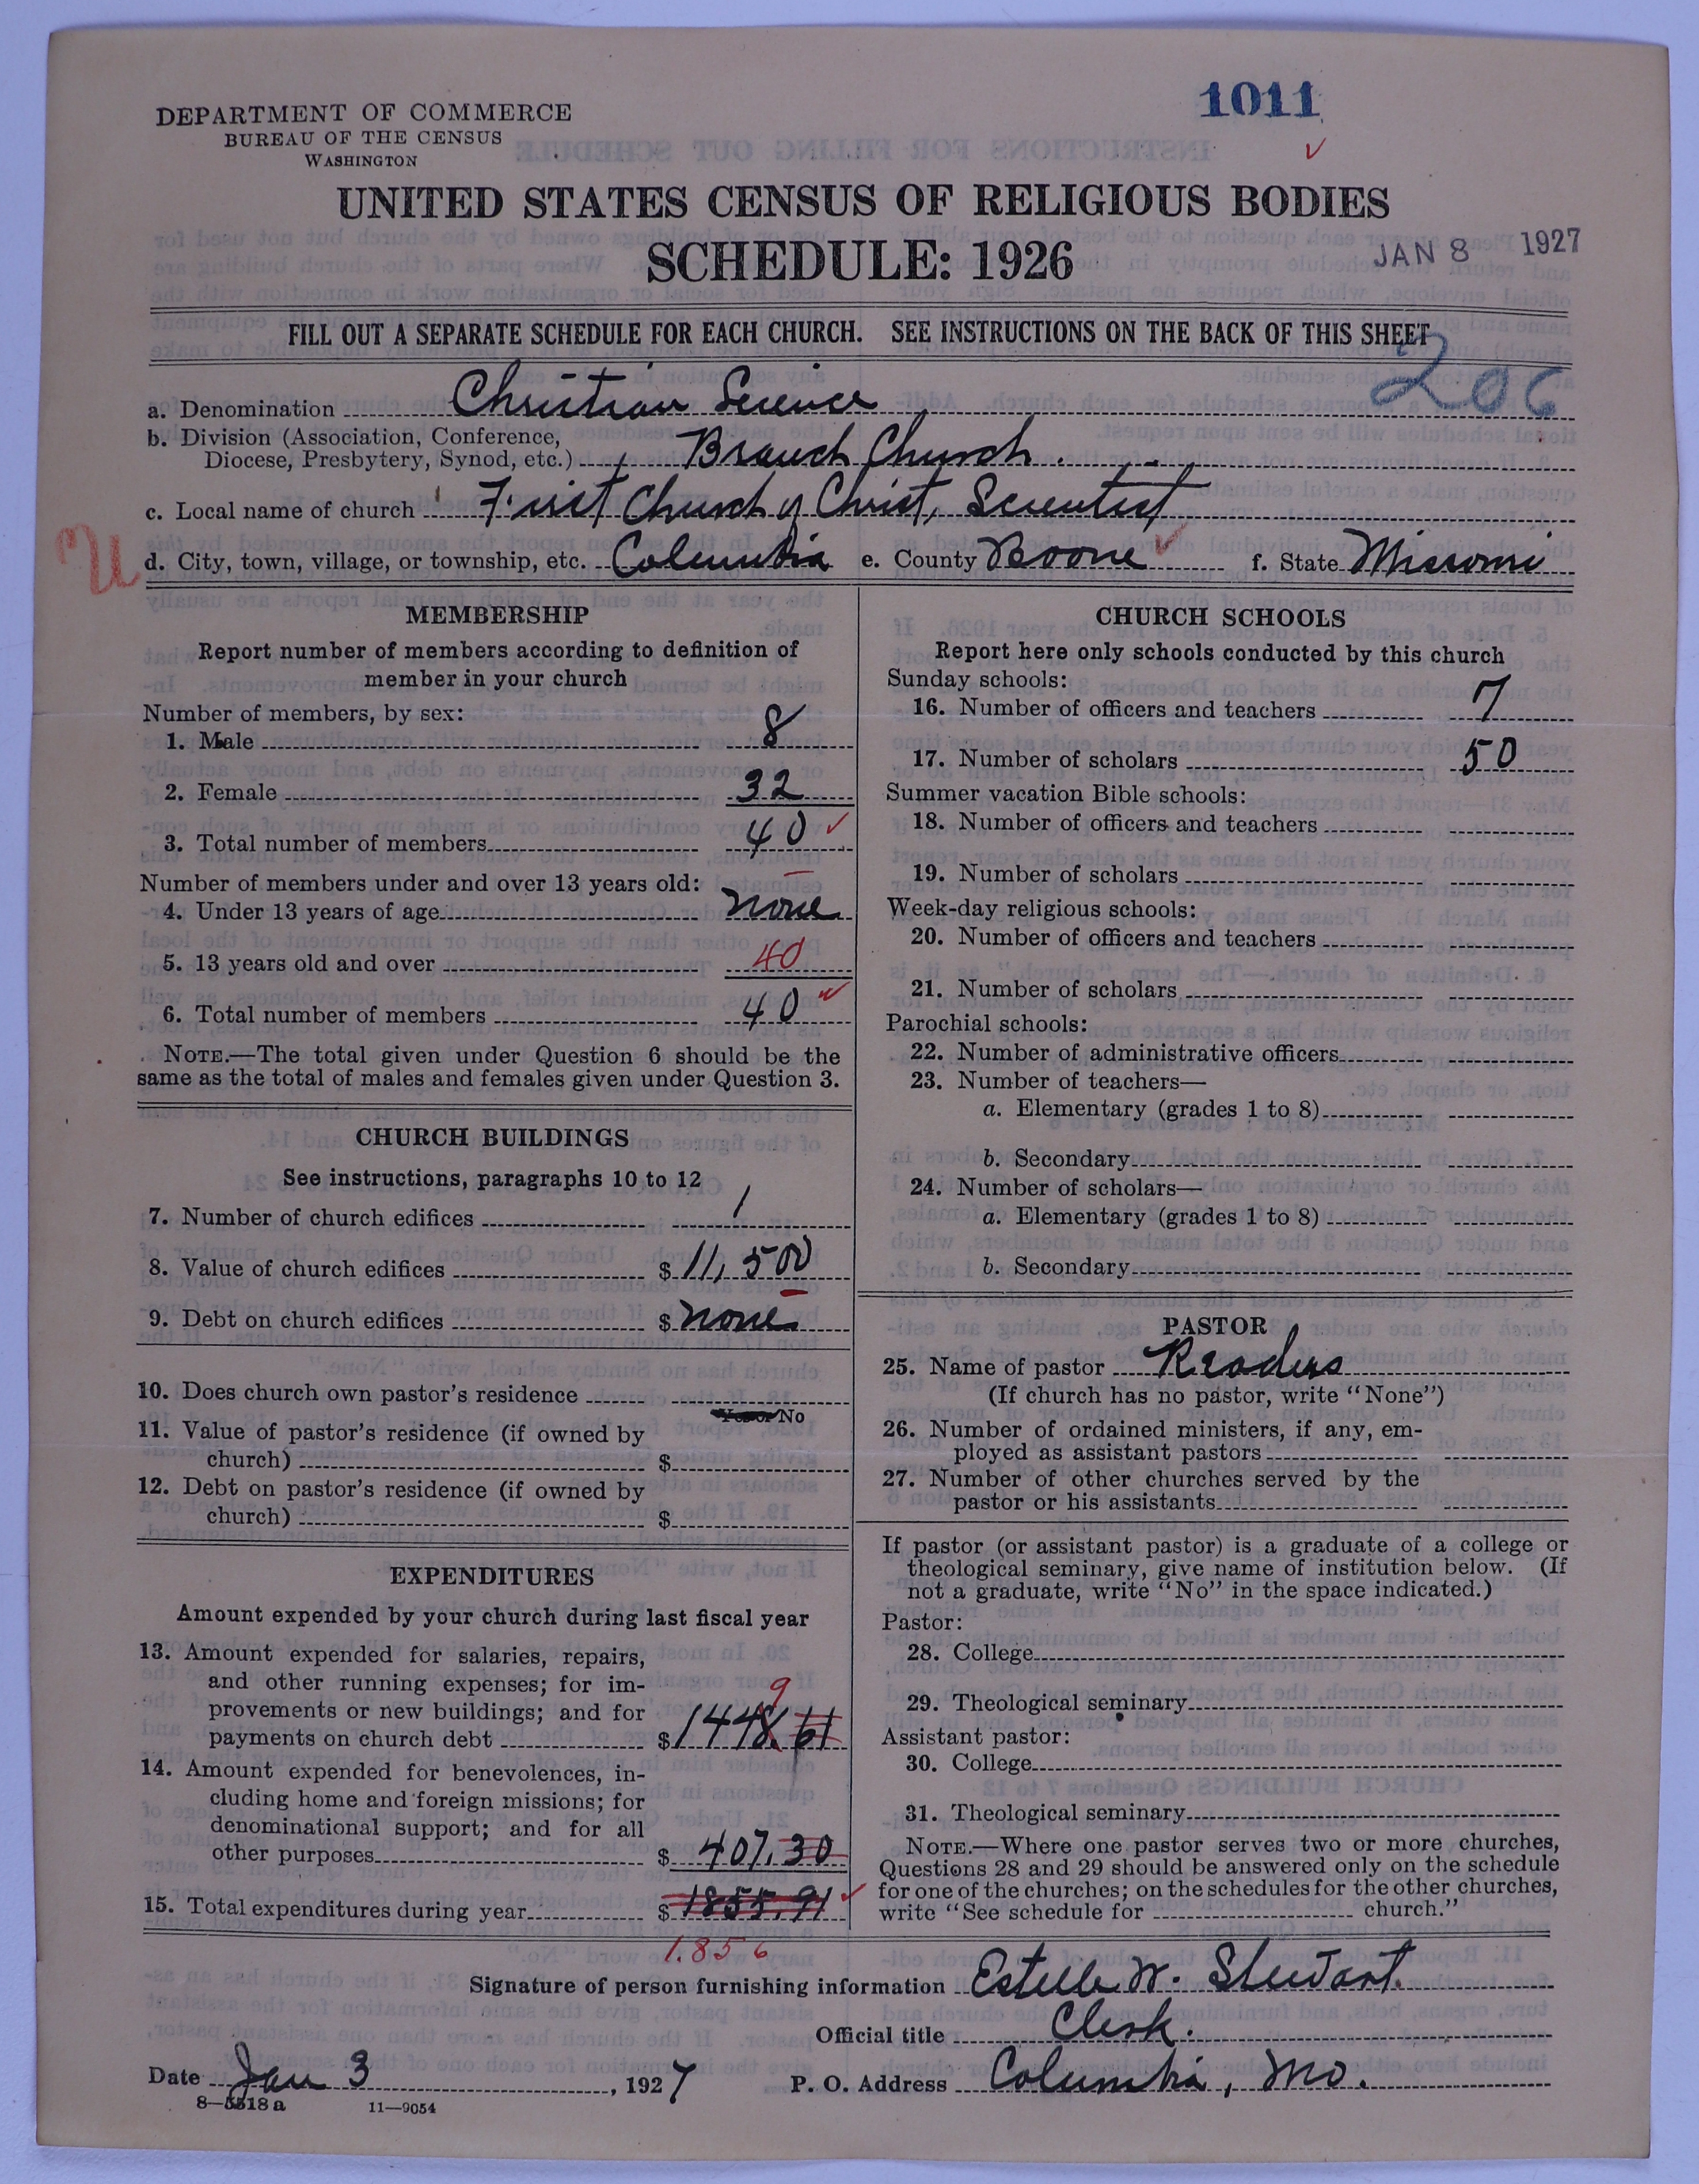 1011
DEPARTMENT OF COMMERCE
BUREAU OF THE CENSUS
WASHINGTON
UNITED STATES CENSUS OF RELIGIOUS BODIES
SCHEDULE: 1926
JAN 8 1927
FILL OUT A SEPARATE SCHEDULE FOR EACH CHURCH. SEE INSTRUCTIONS ON THE BACK OF THIS SHEET
206
a. Denomination Christian Science
b. Division (Association, Conference,
Diocese, Presbytery, Synod, etc.) Branch Church.
c. Local name of church First Church of Christ, Scientist
U
d. City, town, village, or township, etc. Columbia e. County Boone f. State Missouri
MEMBERSHIP
Report number of members according to definition of
member in your church
Number of members, by sex:
1. Male 8
2. Female 32
3. Total number of members 40
Number of members under and over 13 years old:
4. Under 13 years of age none
5. 13 years old and over 40
6. Total number of members 40
NOTE.—The total given under Question 6 should be the
same as the total of males and females given under Question 3.
CHURCH BUILDINGS
See instructions, paragraphs 10 to 12
7. Number of church edifices 1
8. Value of church edifices $ 11,500
9. Debt on church edifices $ none
10. Does church own pastor's residence
No
11. Value of pastor's residence (if owned by
church) $
12. Debt on pastor's residence (if owned by
church) $
EXPENDITURES
Amount expended by your church during last fiscal year
13. Amount expended for salaries, repairs,
and other running expenses; for im-
provements or new buildings; and for
9
payments on church debt $ 1448.61
14. Amount expended for benevolences, in-
cluding home and foreign missions; for
denominational support; and for all
other purposes $ 407.30
15. Total expenditures during year $ 1855.91
1.856
CHURCH SCHOOLS
Report here only schools conducted by this church
Sunday schools:
16. Number of officers and teachers 7
17. Number of scholars 50
Summer vacation Bible schools:
18. Number of officers and teachers
19. Number of scholars
Week-day religious schools:
20. Number of officers and teachers
21. Number of scholars
Parochial schools:
22. Number of administrative officers
23. Number of teachers—
a. Elementary (grades 1 to 8)
b. Secondary
24. Number of scholars—
a. Elementary (grades 1 to 8)
b. Secondary
PASTOR
25. Name of pastor Readers
(If church has no pastor, write "None")
26. Number of ordained ministers, if any, em-
ployed as assistant pastors
27. Number of other churches served by the
pastor or his assistants
If pastor (or assistant pastor) is a graduate of a college or
theological seminary, give name of institution below. (If
not a graduate, write "No" in the space indicated.)
Pastor:
28. College
29. Theological seminary
Assistant pastor:
30. College
31. Theological seminary
NOTE.—Where one pastor serves two or more churches,
Questions 28 and 29 should be answered only on the schedule
for one of the churches; on the schedules for the other churches,
write "See schedule for church."
Signature of person furnishing information Estelle W. Stewart.
Official title Clerk.
Date Jan 3, 1927 P. O. Address Columbia, Mo.
8—5518a 11—9054